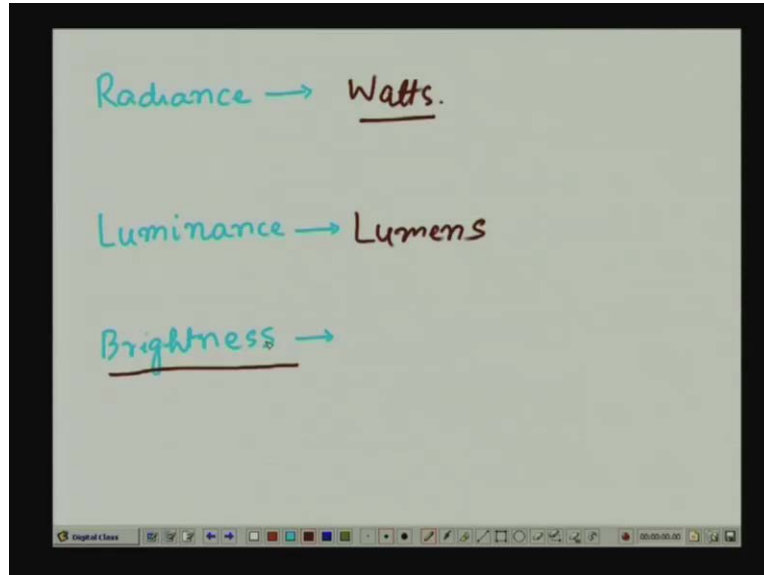 Radiance → Watts.
Luminance → Lumens
Brightness →
Digital Class
00:00:00.00